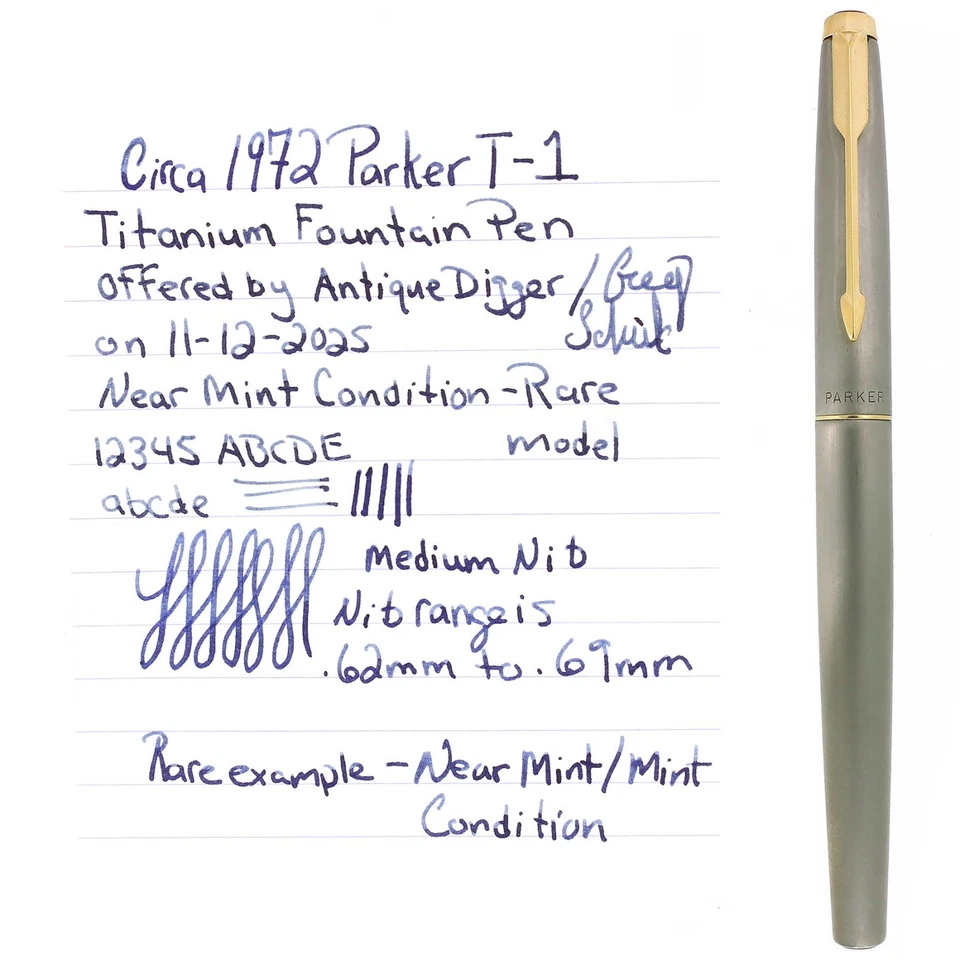 Circa 1972 Parker T-1
Titanium Fountain Pen
offered by AntiqueDigger /
on 11-12-2025
Near Mint Condition - Rare
model
12345 ABCDE
abcde
Medium Nib
Nib range is
.62mm to .69mm
Rare example - Near Mint/Mint
Condition
PARKER